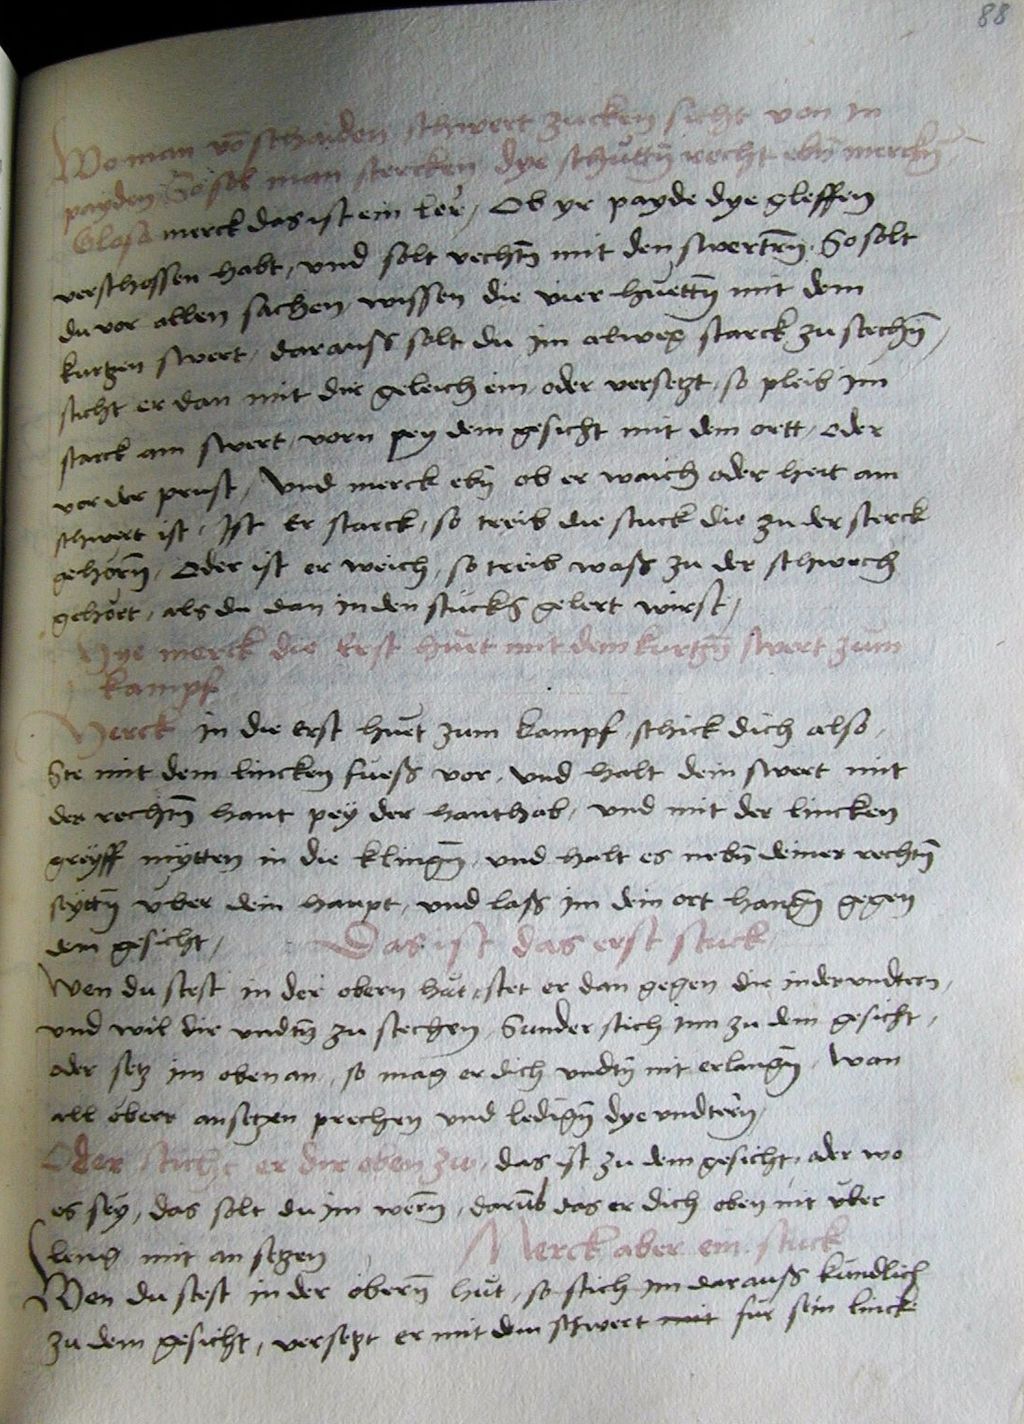 88
Wo man võ schaiden schwert zucken sicht von in
payden So sol man stercken dye schuttn̄ recht ebn̄ merckn̄
Glosa merck das ist ein ler, Ob yr payde dye gleffen
verschossen habt, vnd solt vechtn̄ mit den swertrn̄. So solt
du vor allen sachen wissen die vier huettn̄ mit dem
kurtzen swert, darauss solt du jm alweg starck zu stechn̄,
sticht er dan mit dir geleich ein, oder versetzt, so pleib jm
starck am swert, vorn pey dem gesicht mit dem ortt, oder
vor der prust, Vnd merck ebn̄ ob er waich oder hert am
schwert ist, Ist Er starck, so treib die stuck die zu der sterck
gehorn̄, Oder ist er weich, so treib wass zu der schwech
gehört, als du dan in den stucken gelert wirst,
Hye merck die Erst huet mit dem kurtzn̄ swert zum
kampf
Merck in die erst huet zum kampf, schick dich also,
Ste mit dem lincken fuess vor, vnd halt dein swert mit
der rechtn̄ hant pey der hanthab, vnd mit der lincken
greyff mytten in die klingn̄, vnd halt es nebn̄ deiner rechtn̄
syttn̄ vber dein haupt, vnd lass im dein ort hangn̄ gegen
dem gesicht, Das ist das erst stuck,
Wen du stest in der obern hut, stet er dan gegen dir in der vndtern,
vnd wil dir vndtn̄ zu stechen, Sunder stich jnn zu dem gesicht,
oder setz im oben an, so mag er dich vndtn̄ nit erlangn̄, Wan
all ober ansetzen prechen vnd ledign̄ dye vndtern̄,
Oder sticht er dir oben zw, das ist zu dem gesicht, oder wo
es sey, das solt du im wern̄, darub das er dich oben nit vber
leng mit an setzen Merck aber ein stuck
Wen du stest in der obern̄ hut, so stich im darauss kundlich
zu dem gesicht, versetzt er mit dem schwert mit fur sein lincke